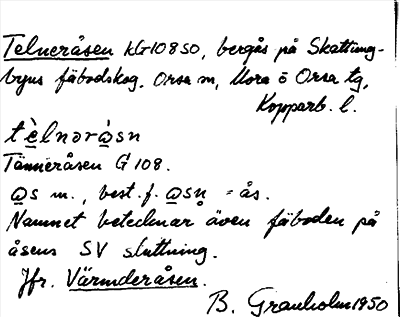 Telneråsen kG10850, bergås på Skattung-
byns fäbodskog. Orsa m, Mora o Orsa tg,
Kopparb. l.
tèlnoråsn
Tänneråsen G 108.
ås m., best. f. åsn = ås.
Namnet betecknar även fäboden på
åsens SV sluttning.
Jfr. Värmderåsen.
B. Granholm 1950